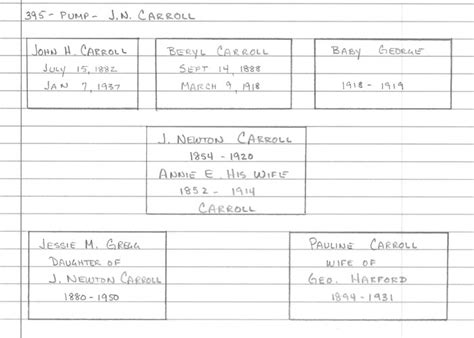 395 - PUMP - J.N. CARROLL
JOHN H. CARROLL
JULY 15, 1882
JAN 7, 1937
BERYL CARROLL
SEPT 14, 1888
MARCH 9, 1918
BABY GEORGE
1918 - 1919
J. NEWTON CARROLL
1854 - 1920
ANNIE E. HIS WIFE
1852 - 1914
CARROLL
JESSIE M. GREGG
DAUGHTER OF
J. NEWTON CARROLL
1880 - 1950
PAULINE CARROLL
WIFE OF
GEO. HARFORD
1894 - 1931